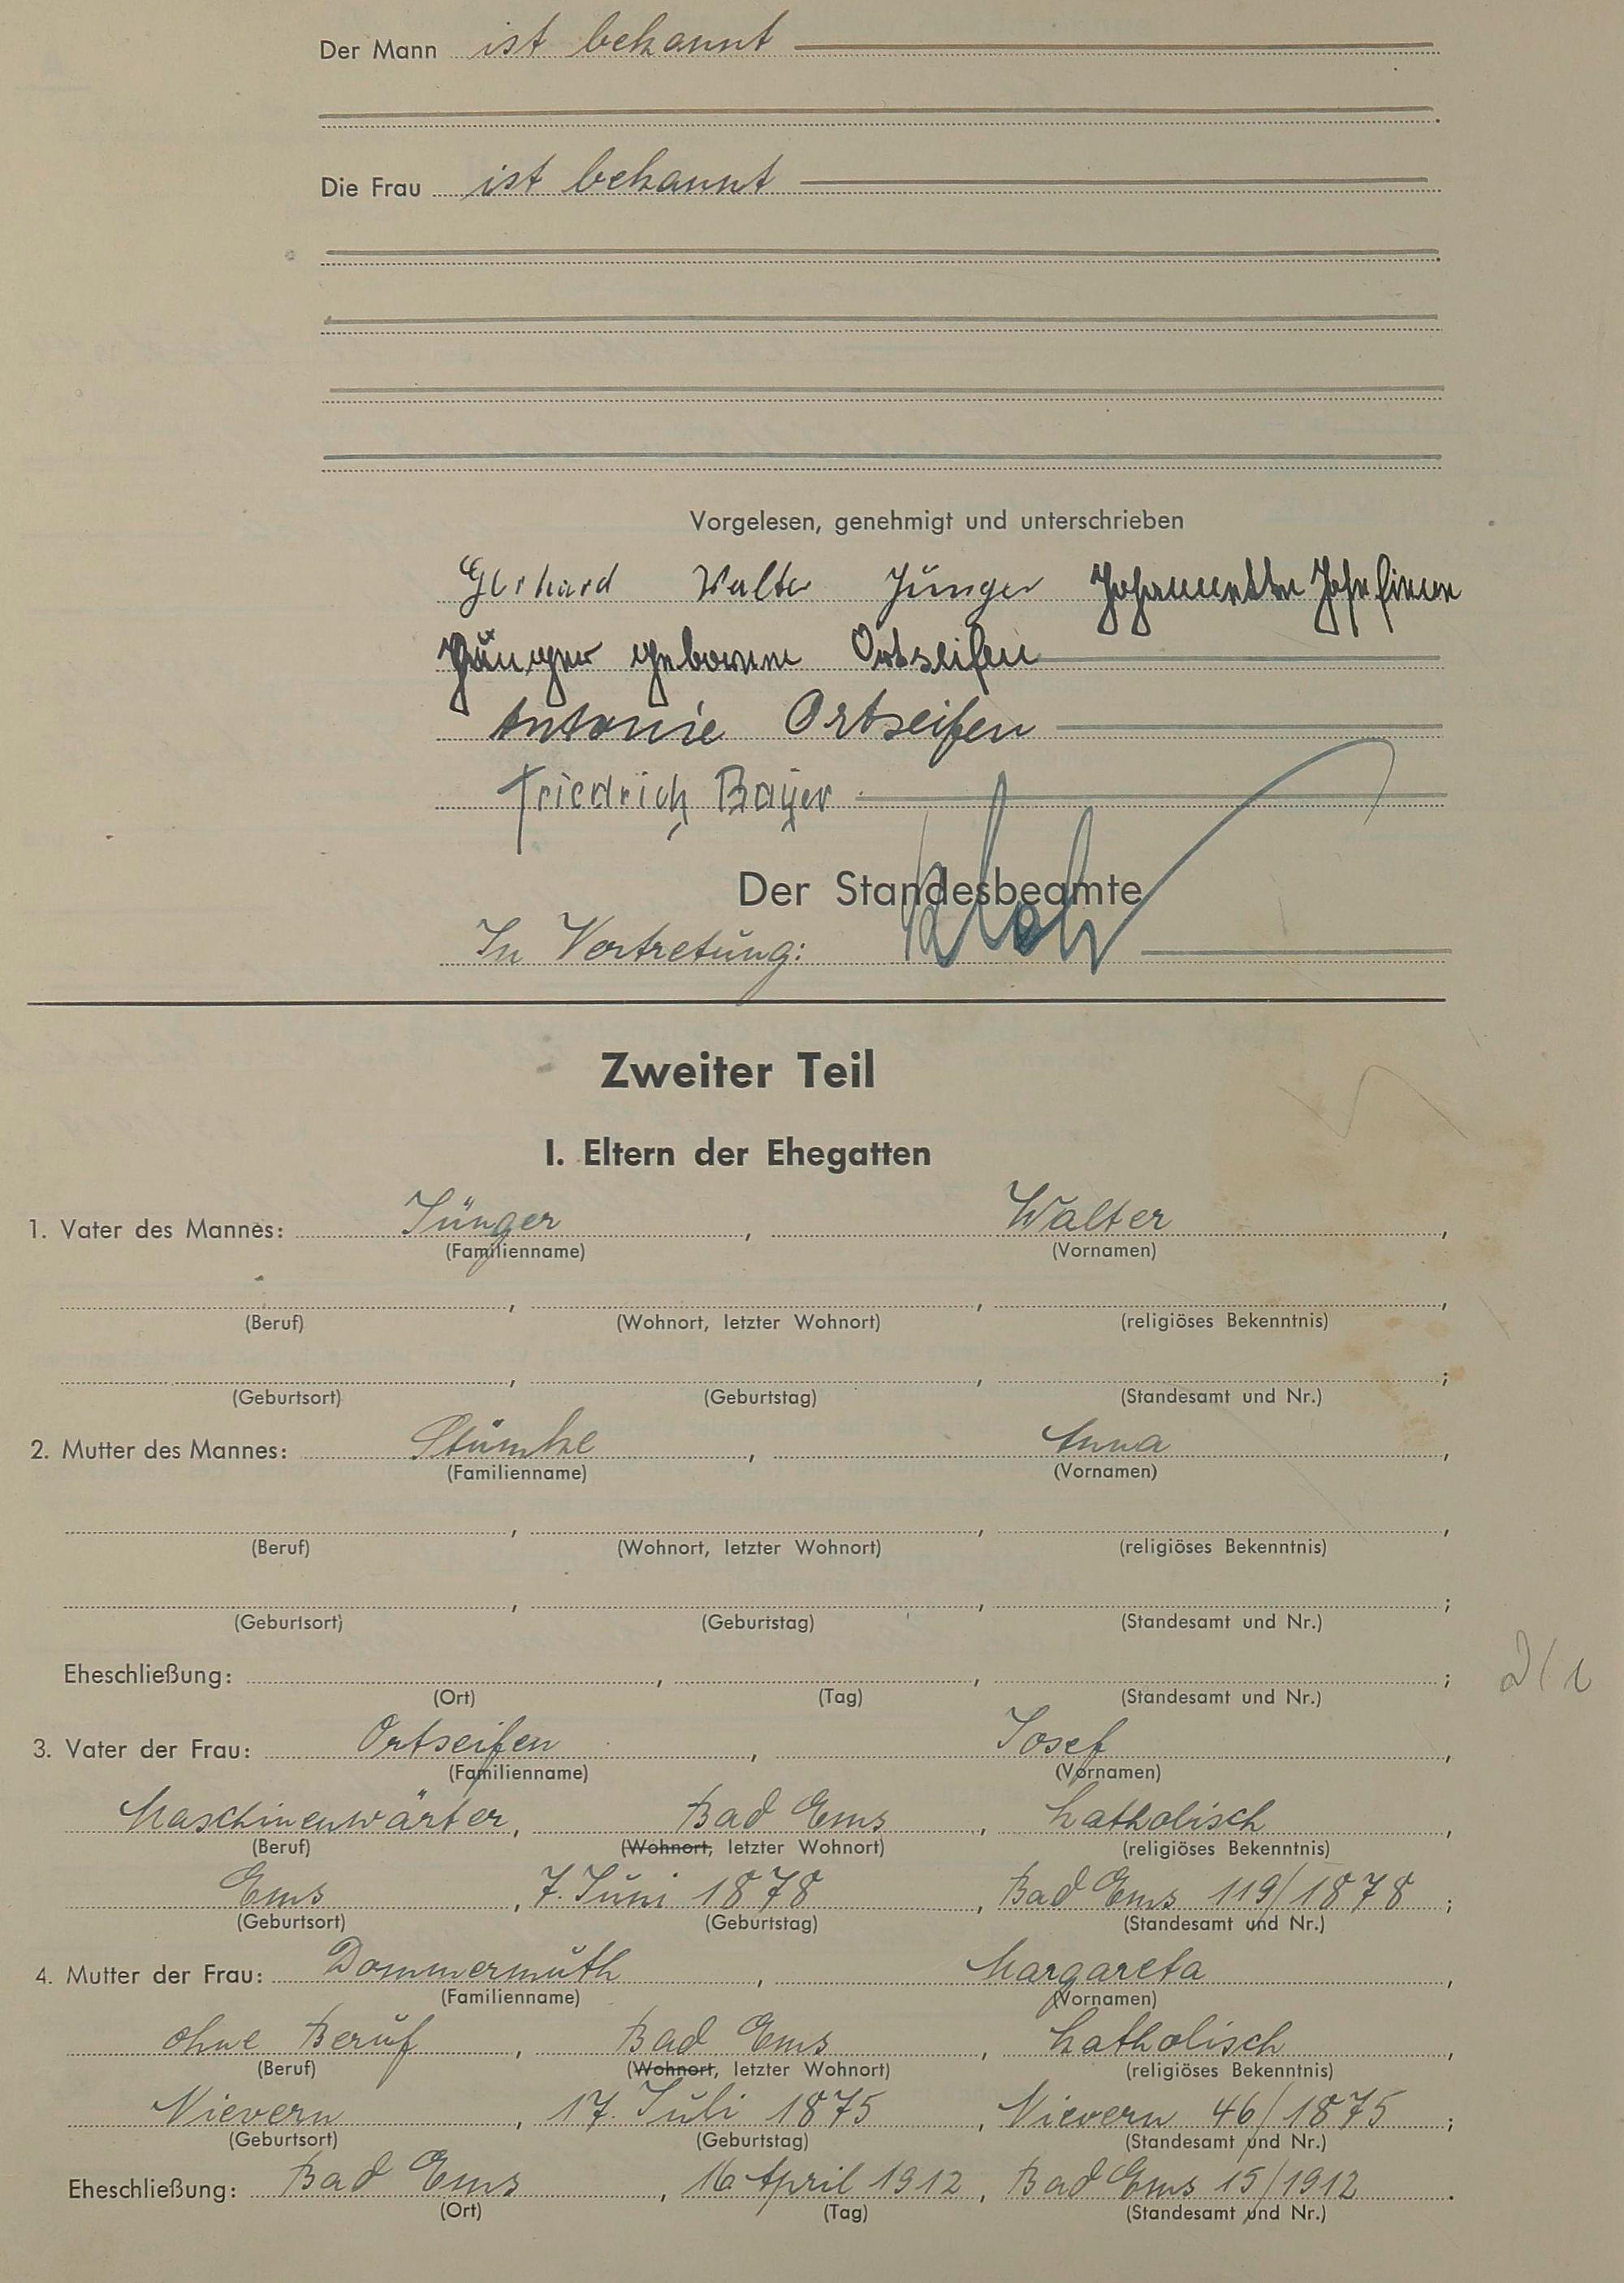 Der Mann ist bekannt
Die Frau ist bekannt
Vorgelesen, genehmigt und unterschrieben
Gerhard Walter Jünger Johannette Josefine
Jünger geborene Ortseifen
Antonie Ortseifen
Friedrich Bayer
Der Standesbeamte
In Vertretung:
Zweiter Teil
I. Eltern der Ehegatten
1. Vater des Mannes: Jünger, Walter,
(Familienname) (Vornamen)
, , ,
(Beruf) (Wohnort, letzter Wohnort) (religiöses Bekenntnis)
, , ;
(Geburtsort) (Geburtstag) (Standesamt und Nr.)
2. Mutter des Mannes: Stümke, Anna,
(Familienname) (Vornamen)
, , ,
(Beruf) (Wohnort, letzter Wohnort) (religiöses Bekenntnis)
, , ;
(Geburtsort) (Geburtstag) (Standesamt und Nr.)
Eheschließung: , , ;
(Ort) (Tag) (Standesamt und Nr.)
3. Vater der Frau: Ortseifen, Josef,
(Familienname) (Vornamen)
Maschinenwärter, Bad Ems, katholisch,
(Beruf) (Wohnort, letzter Wohnort) (religiöses Bekenntnis)
Ems, 7. Juni 1878, Bad Ems 119/1878;
(Geburtsort) (Geburtstag) (Standesamt und Nr.)
4. Mutter der Frau: Dommermuth, Margareta,
(Familienname) (Vornamen)
ohne Beruf, Bad Ems, katholisch,
(Beruf) (Wohnort, letzter Wohnort) (religiöses Bekenntnis)
Nievern, 17. Juli 1875, Nievern 46/1875;
(Geburtsort) (Geburtstag) (Standesamt und Nr.)
Eheschließung: Bad Ems, 16 April 1912, Bad Ems 15/1912.
(Ort) (Tag) (Standesamt und Nr.)